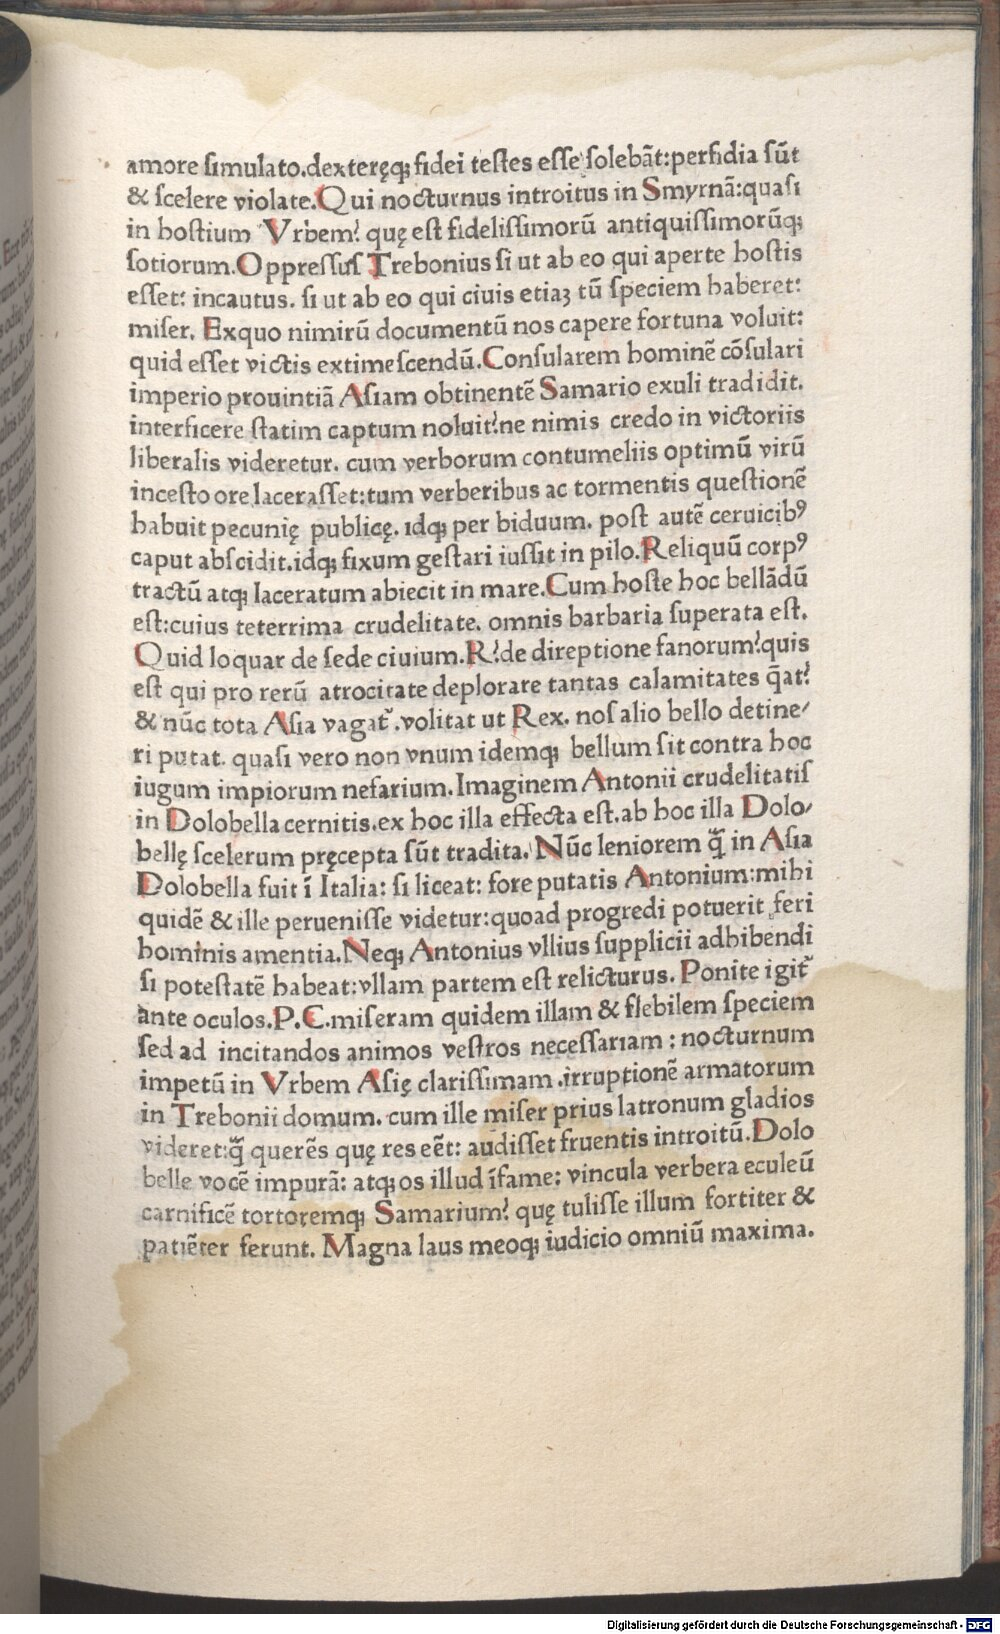 amore ſimulato.dexteręq; fidei teſtes eſſe ſolebāt:perfidia ſūt
& ſcelere violate.Qui nocturnus introitus in Smyrnā:quaſi
in hoſtium Vrbem? quę eſt fideliſſimorū antiquiſſimorūq;
ſotiorum.Oppreſſuſ Trebonius ſi ut ab eo qui aperte hoſtis
eſſet: incautus. ſi ut ab eo qui ciuis etiaꝫ tū ſpeciem haberet:
miſer. Exquo nimirū documentū nos capere fortuna voluit:
quid eſſet victis extimeſcendū.Conſularem hominē cōſulari
imperio prouintiā Aſiam obtinentē Samario exuli tradidit.
interficere ſtatim captum noluit?ne nimis credo in victoriis
liberalis videretur. cum verborum contumeliis optimū virū
inceſto ore laceraſſet:tum verberibus ac tormentis queſtionē
habuit pecunię publicę. idq; per biduum. poſt autē ceruicibꝰ
caput abſcidit.idq; fixum geſtari iuſſit in pilo.Reliquū corpꝰ
tractū atq; laceratum abiecit in mare.Cum hoſte hoc bellādū
eſt:cuius teterrima crudelitate. omnis barbaria ſuperata eſt.
Quid loquar de ſede ciuium.R?de direptione fanorum?quis
eſt qui pro rerū atrocitate deplorare tantas calamitates q̄at?
& nūc tota Aſia vagat᷑.volitat ut Rex. noſ alio bello detine⸗
ri putat. quaſi vero non vnum idemq; bellum ſit contra hoc
iugum impiorum nefarium.Imaginem Antonii crudelitatiſ
in Dolobella cernitis.ex hoc illa effecta eſt.ab hoc illa Dolo⸗
bellę ſcelerum pręcepta ſūt tradita. Nūc leniorem q̄ in Aſia
Dolobella fuit ī Italia: ſi liceat: fore putatis Antonium:mihi
quidē & ille perueniſſe videtur:quoad progredi potuerit feri
hominis amentia.Neq; Antonius vllius ſupplicii adhibendi
ſi poteſtatē habeat:vllam partem eſt relicturus. Ponite igit᷑
ante oculos.P.C.miſeram quidem illam & flebilem ſpeciem
ſed ad incitandos animos veſtros neceſſariam : nocturnum
impetū in Vrbem Aſię clariſſimam .irruptionē armatorum
in Trebonii domum. cum ille miſer prius latronum gladios
videret:q̄ querēs quę res eēt: audiſſet fruentis introitū.Dolo
belle vocē impurā: atq; os illud īfame: vincula verbera eculeū
carnificē tortoremq; Samarium? quę tuliſſe illum fortiter &
patiēter ferunt. Magna laus meoq; iudicio omniū maxima.
Digitalisierung gefördert durch die Deutsche Forschungsgemeinschaft - DFG